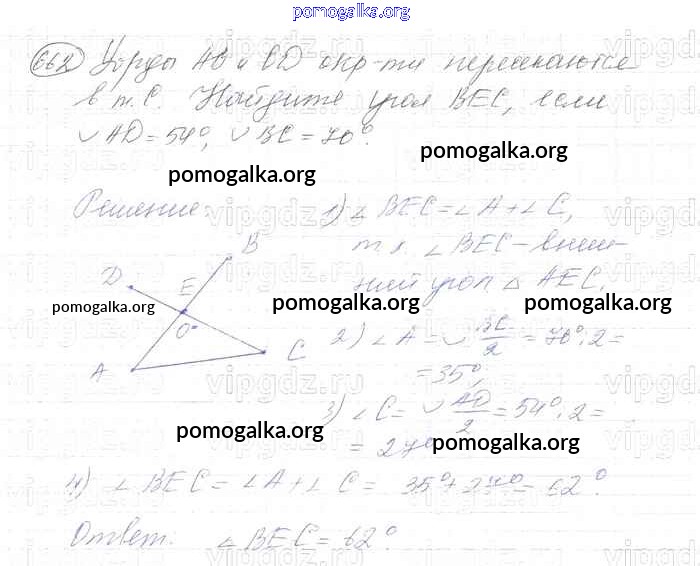 pomogalka.org
662 Хорды AB и CD окр-ти пересекаются
в т. E. Найдите угол BEC, если
◡AD = 54°, ◡BC = 70°.
pomogalka.org
pomogalka.org
Решение:
1) ∠BEC = ∠A + ∠C,
т.к. ∠BEC - внеш-
ний угол △ AEC.
B
D
E
O
A
C
pomogalka.org
pomogalka.org
pomogalka.org
2) ∠A = ◡BC/2 = 70°:2 =
= 35°,
3) ∠C = ◡AD/2 = 54°:2 =
= 27°
pomogalka.org
pomogalka.org
4) ∠BEC = ∠A + ∠C = 35° + 27° = 62°.
Ответ: ∠BEC = 62°
vipgdz.ru